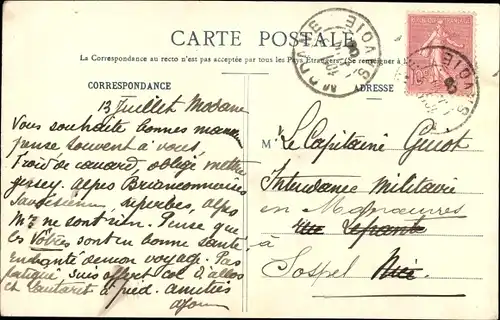 CARTE POSTALE
La Correspondance au recto n'est pas acceptée par tous les Pays Étrangers. (Se renseigner à
CORRESPONDANCE
ADRESSE
MODANE
SAVOIE
SAVOIE
13 Juillet Modane
Vous souhaite bonnes
pense souvent à vous,
froid de canard, obligé mettre
jersey. Alpes Briançonnaises
superbes, alpes
Mmes ne sont rien. Pense que
les Vôtres sont en bonne santé.
Enchanté de mon voyage. Pas
fatigué suis
et Lautaret à pied. amitiés
M. Le Capitaine Guiot
Intendance Militaire
en Manœuvres
à
Sospel Nice